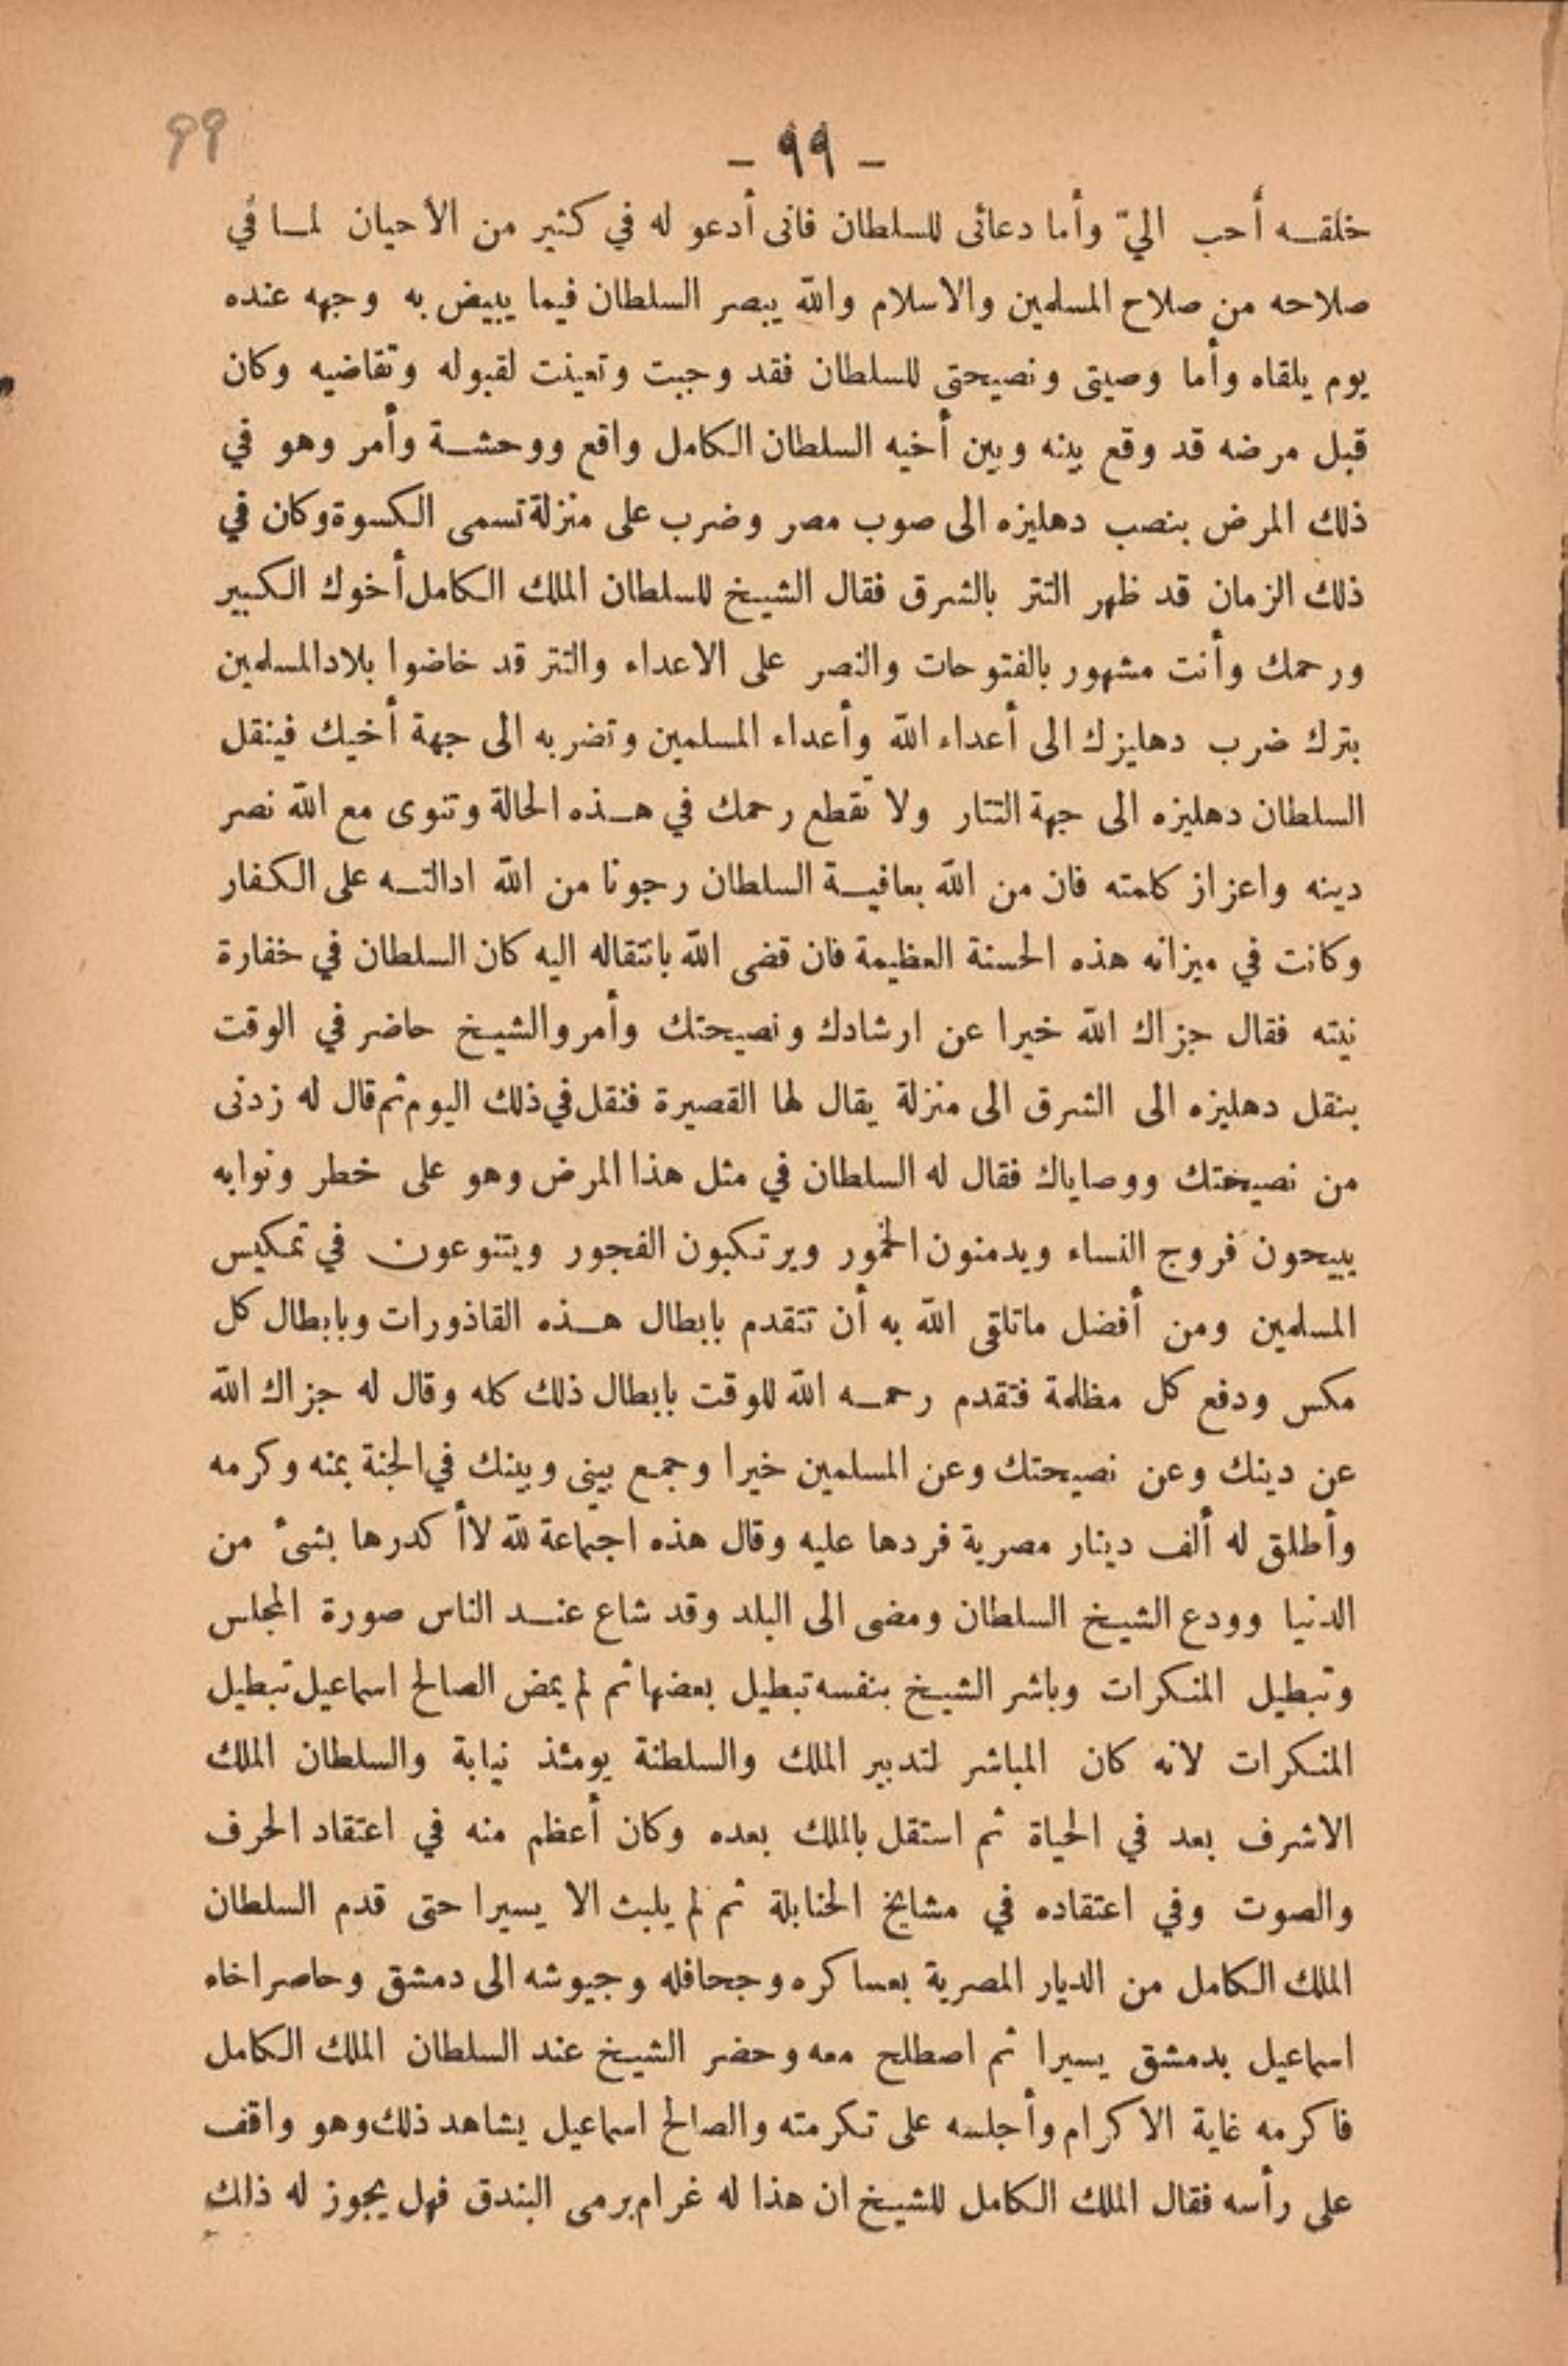 ٩٩
– ٩٩ –
خلقه أحب اليّ وأما دعائى للسلطان فانى أدعو له في كثير من الأحيان لما في
صلاحه من صلاح المسلمين والاسلام والله يبصر السلطان فيما يبيض به وجهه عنده
يوم يلقاه وأما وصيتى ونصيحتى للسلطان فقد وجبت وتعينت لقبوله وتقاضيه وكان
قبل مرضه قد وقع بينه وبين أخيه السلطان الكامل واقع ووحشة وأمر وهو في
ذلك المرض بنصب دهليزه الى صوب مصر وضرب على منزلة تسمى الكسوة وكان في
ذلك الزمان قد ظهر التتر بالشرق فقال الشيخ للسلطان الملك الكامل أخوك الكبير
ورحمك وأنت مشهور بالفتوحات والنصر على الاعداء والتتر قد خاضوا بلاد المسلمين
بترك ضرب دهليزك الى أعداء الله وأعداء المسلمين وتضربه الى جهة أخيك فينقل
السلطان دهليزه الى جهة التتار ولا تقطع رحمك في هذه الحالة وتنوى مع الله نصر
دينه واعزاز كلمته فان من الله بعافية السلطان رجونا من الله ادالته على الكفار
وكانت في ميزانه هذه الحسنة العظيمة فان قضى الله بانتقاله اليه كان السلطان في خفارة
نيته فقال جزاك الله خيرا عن ارشادك ونصيحتك وأمر والشيخ حاضر في الوقت
بنقل دهليزه الى الشرق الى منزلة يقال لها القصيرة فنقل في ذلك اليوم ثم قال له زدنى
من نصيحتك ووصاياك فقال له السلطان في مثل هذا المرض وهو على خطر ونوابه
يبيحون فروج النساء ويدمنون الخمور ويرتكبون الفجور ويتنوعون في تمكيس
المسلمين ومن أفضل ماتلقى الله به أن تتقدم بابطال هذه القاذورات وبابطال كل
مكس ودفع كل مظلمة فتقدم رحمه الله للوقت بابطال ذلك كله وقال له جزاك الله
عن دينك وعن نصيحتك وعن المسلمين خيرا وجمع بينى وبينك في الجنة بمنه وكرمه
وأطلق له ألف دينار مصرية فردها عليه وقال هذه اجتماعة لله لاأ كدرها بشئ من
الدنيا وودع الشيخ السلطان ومضى الى البلد وقد شاع عند الناس صورة المجلس
وتبطيل المنكرات وباشر الشيخ بنفسه تبطيل بعضها ثم لم يمض الصالح اسماعيل تبطيل
المنكرات لانه كان المباشر لتدبير الملك والسلطنة يومئذ نيابة والسلطان الملك
الاشرف بعد في الحياة ثم استقل بالملك بعده وكان أعظم منه في اعتقاد الحرف
والصوت وفي اعتقاده في مشايخ الحنابلة ثم لم يلبث الا يسيرا حتى قدم السلطان
الملك الكامل من الديار المصرية بعساكره وجحافله وجيوشه الى دمشق وحاصر اخاه
اسماعيل بدمشق يسيرا ثم اصطلح معه وحضر الشيخ عند السلطان الملك الكامل
فاكرمه غاية الاكرام وأجلسه على تكرمته والصالح اسماعيل يشاهد ذلك وهو واقف
على رأسه فقال الملك الكامل للشيخ ان هذا له غرام برمى البندق فهل يجوز له ذلك